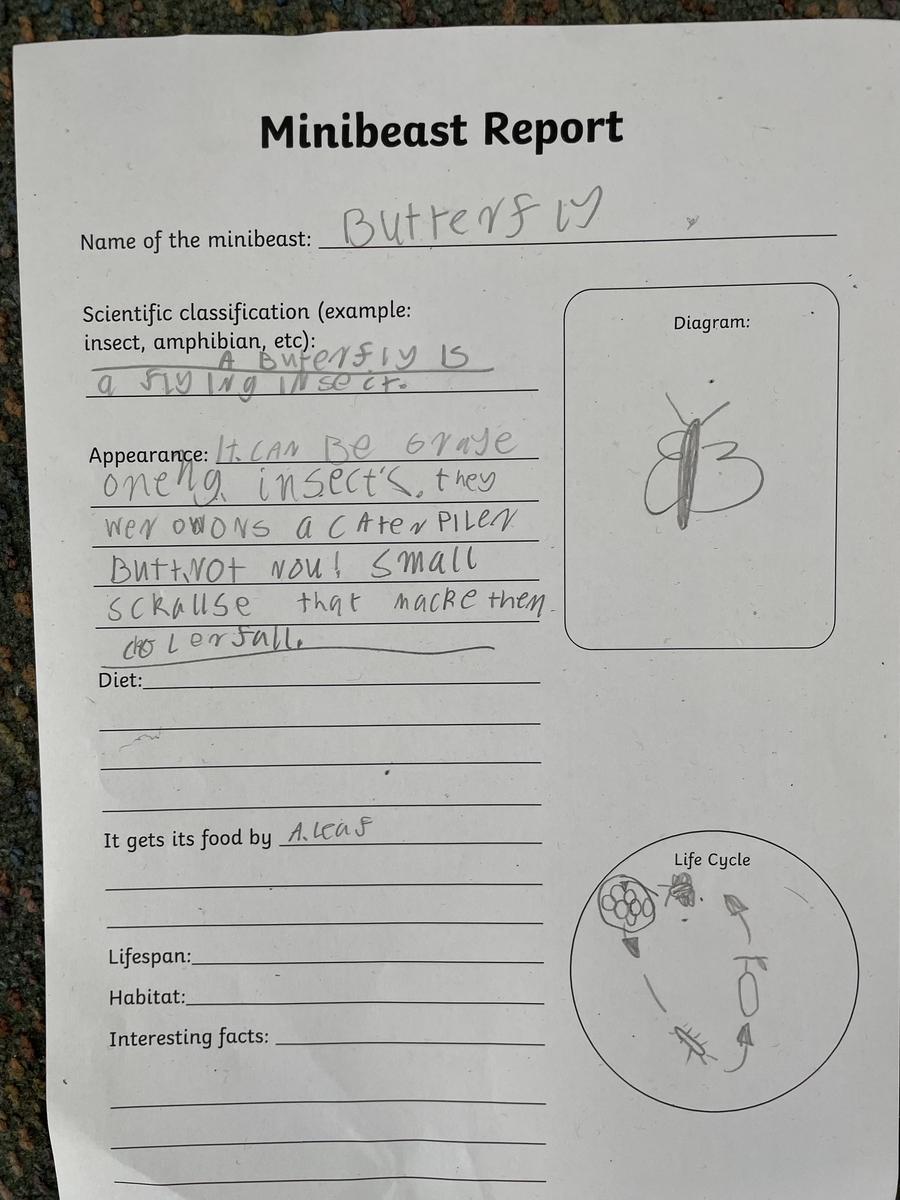 Minibeast Report
Name of the minibeast: Butterfly
Scientific classification (example:
insect, amphibian, etc):
A Buterfly is
a flying insect.
Diagram:
Appearance: It. CAN Be Graje
oneng. insect's. they
wer owons a CAterPiler
Butt.Not nou! Small
sckallse that macke then
colerfall.
Diet:
It gets its food by A.leaf
Life Cycle
Lifespan:
Habitat:
Interesting facts: